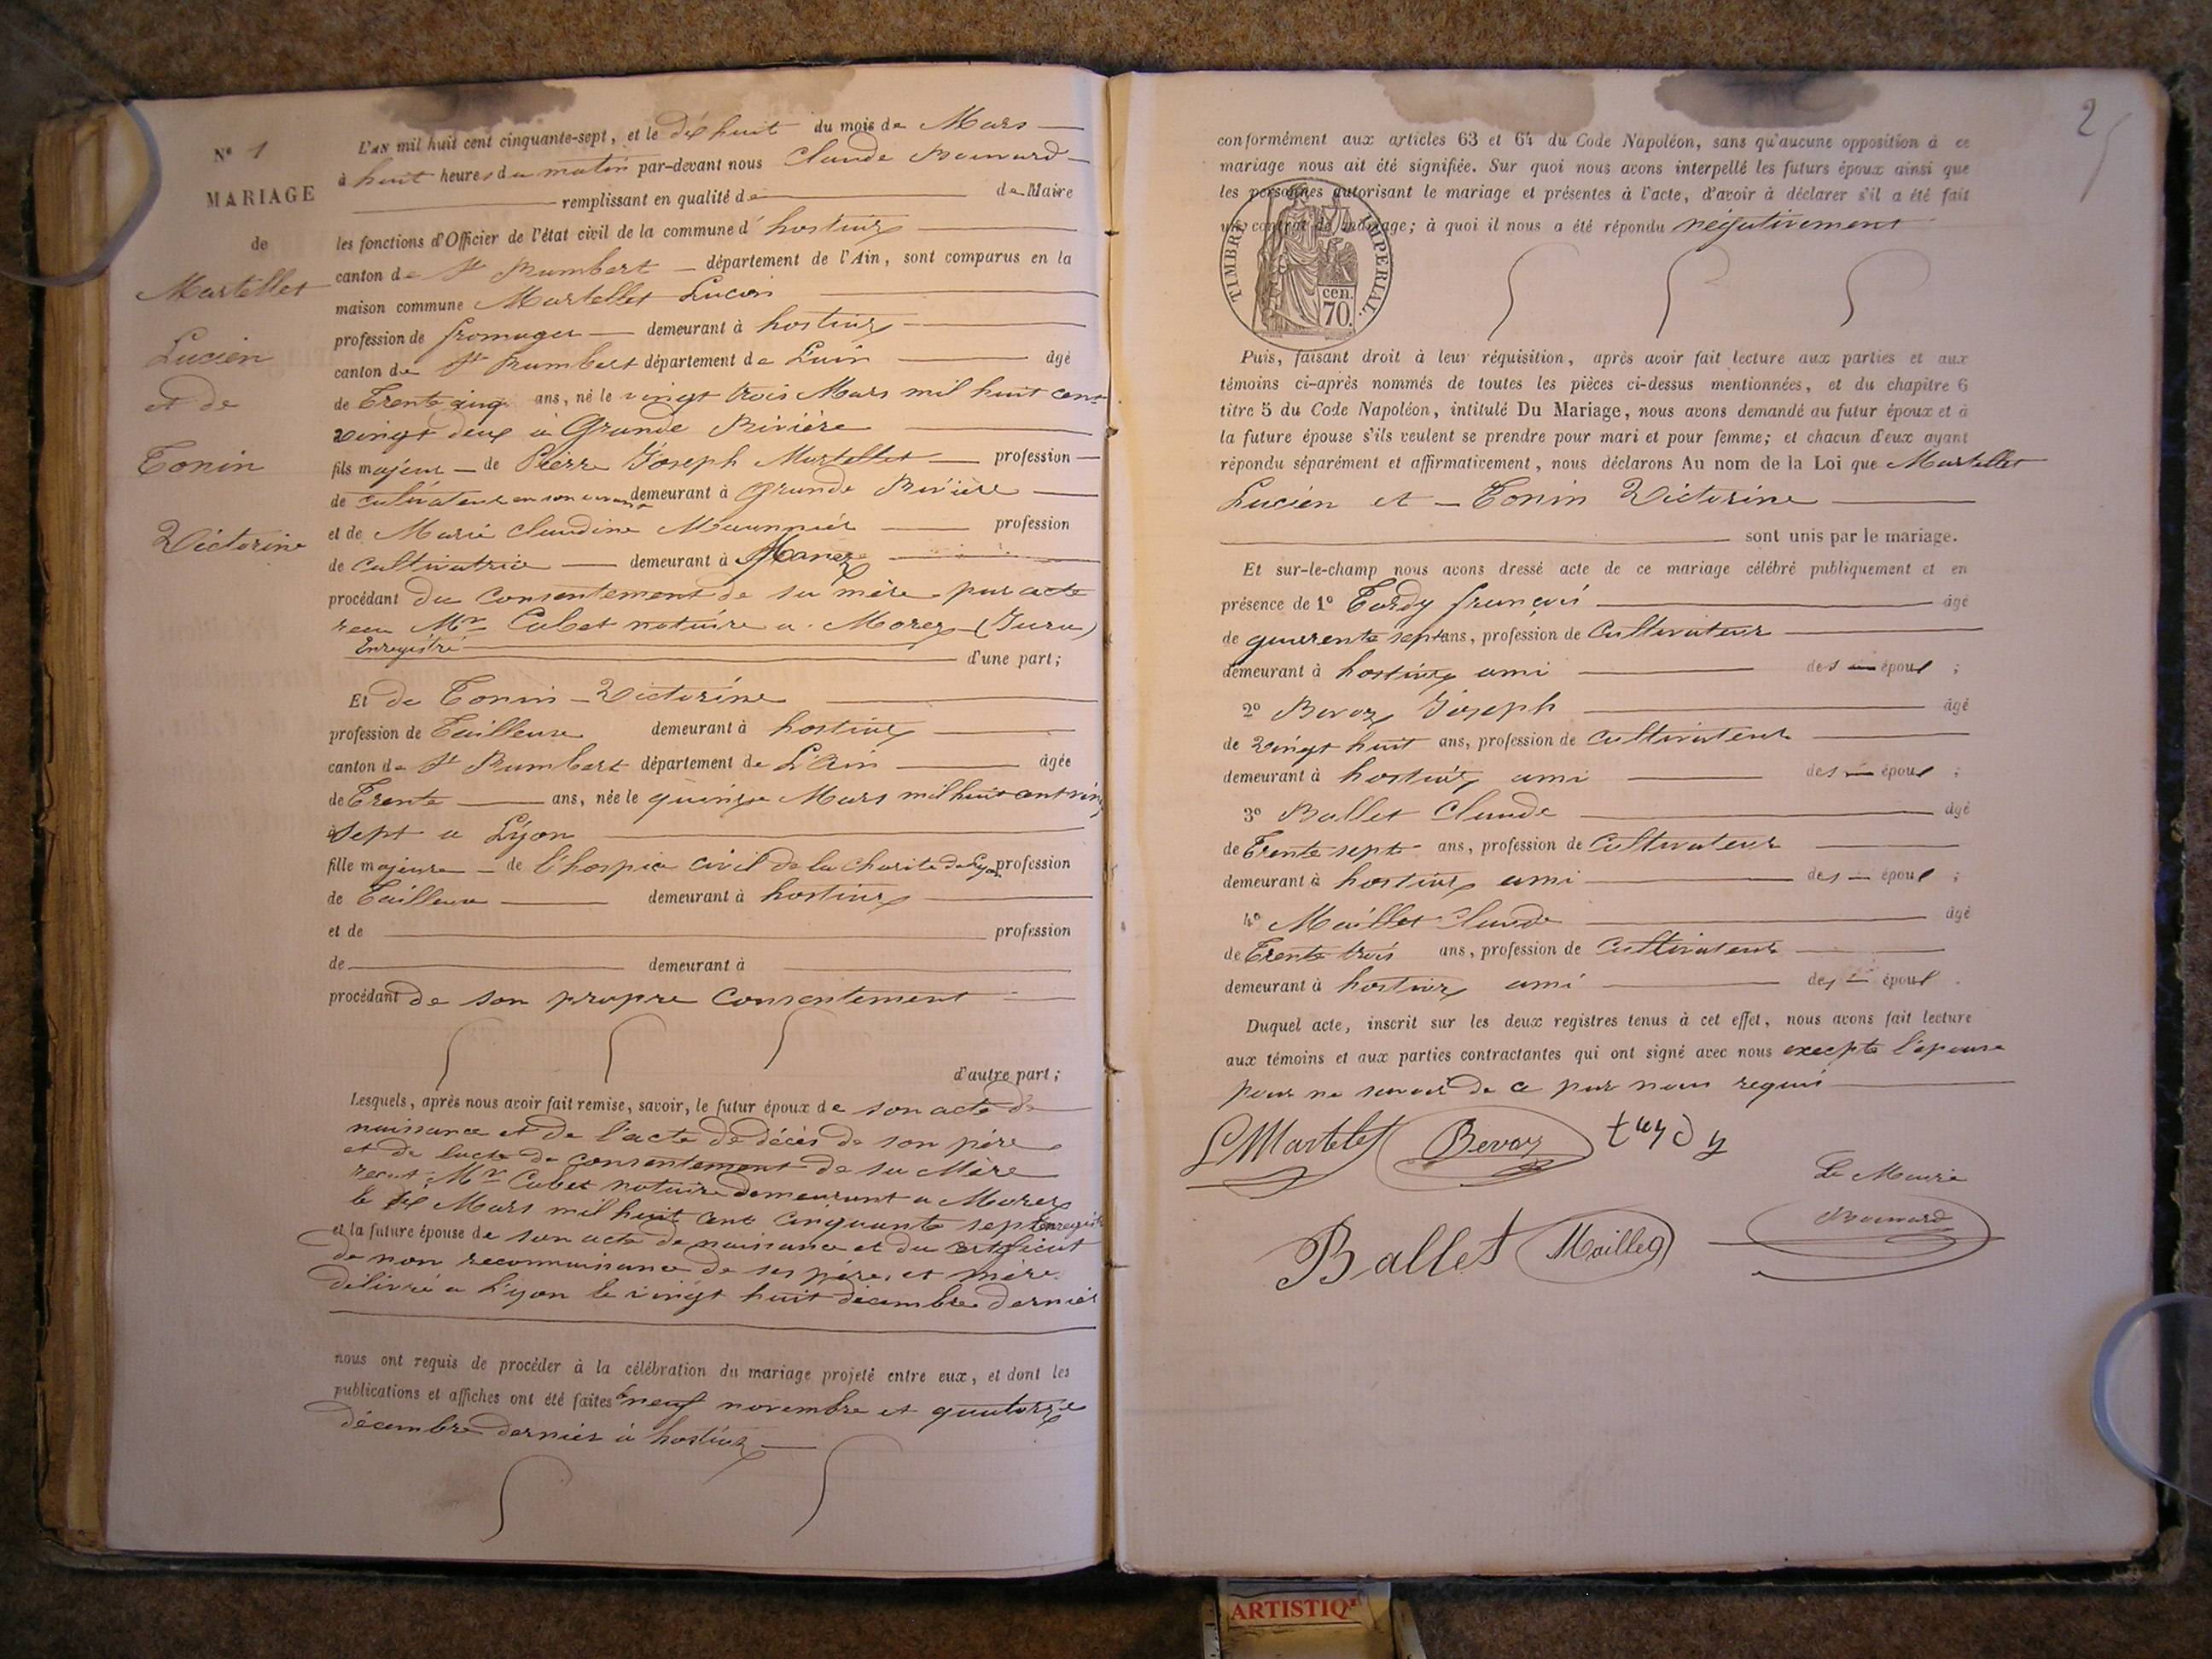 N° 1
MARIAGE
de
Martellet
Lucien
et de
Tonin
Victorine
L'AN mil huit cent cinquante-sept, et le dix huit du mois de Mars
à huit heures du matin par-devant nous Claude
remplissant en qualité de de Maire
les fonctions d'Officier de l'état civil de la commune d' hostiaz
canton de St Rambert département de l'Ain, sont comparus en la
maison commune Martellet Lucien
profession de fromager demeurant à hostiaz
canton de St Rambert département de L'ain âgé
de Trente cinq ans, né le vingt trois Mars mil huit cent
vingt deux à Grande Rivière
fils majeur de Pierre Joseph Martellet profession
de cultivateur en son vivant demeurant à Grande Rivière
et de Marie Claudine profession
de cultivatrice demeurant à Morez
procédant du consentement de sa mère par acte
recu Mr Cabet notaire a Morez (Jura)
Enregistré
d'une part;
Et de Tonin Victorine
profession de Tailleuse demeurant à hostiaz
canton de St Rambert département de L'Ain âgée
de Trente ans, née le quinze Mars mil huit cent vingt
sept a Lyon
fille majeure de l'hospice civil de la charité de Lyon profession
de Tailleuse demeurant à hostiaz
et de profession
de demeurant à
procédant de son propre consentement
d'autre part;
Lesquels, après nous avoir fait remise, savoir, le futur époux de son acte de
naissance et de l'acte de décès de son père
et de l'acte de consentement de sa Mère
recut Mr Cabet notaire demeurant a Morez
le six Mars mil huit cent cinquante sept Enregistré
et la future épouse de son acte de naissance et du certificat
de non reconnaissance de ses père et mère
délivré a Lyon le vingt huit décembre dernier
nous ont requis de procéder à la célébration du mariage projeté entre eux, et dont les
publications et affiches ont été faites le neuf novembre et quatorze
décembre dernier à hostiaz
2
conformément aux articles 63 et 64 du Code Napoléon, sans qu'aucune opposition à ce
mariage nous ait été signifiée. Sur quoi nous avons interpellé les futurs époux ainsi que
les personnes autorisant le mariage et présentes à l'acte, d'avoir à déclarer s'il a été fait
un contrat de mariage; à quoi il nous a été répondu négativement
TIMBRE IMPERIAL.
70 cen.
Puis, faisant droit à leur réquisition, après avoir fait lecture aux parties et aux
témoins ci-après nommés de toutes les pièces ci-dessus mentionnées, et du chapitre 6
titre 5 du Code Napoléon, intitulé Du Mariage, nous avons demandé au futur époux et à
la future épouse s'ils veulent se prendre pour mari et pour femme; et chacun d'eux ayant
répondu séparément et affirmativement, nous déclarons Au nom de la Loi que Martellet
Lucien et Tonin Victorine
sont unis par le mariage.
Et sur-le-champ nous avons dressé acte de ce mariage célébré publiquement et en
présence de 1° Tardy françois âgé
de quarente sept ans, profession de Cultivateur
demeurant à hostiaz ami des époux ;
2° Bevoz Joseph âgé
de vingt huit ans, profession de cultivateur
demeurant à hostiaz ami des époux ;
3° Ballet Claude âgé
de Trente sept ans, profession de Cultivateur
demeurant à hostiaz ami des époux ;
4° Maillet Claude âgé
de Trente trois ans, profession de cultivateur
demeurant à hostiaz ami des époux .
Duquel acte, inscrit sur les deux registres tenus à cet effet, nous avons fait lecture
aux témoins et aux parties contractantes qui ont signé avec nous excepté l'épouse
pour ne savoir de ce par nous requis
L Martelet Bevoz tardy
Le Maire
Ballet
ARTISTIQ